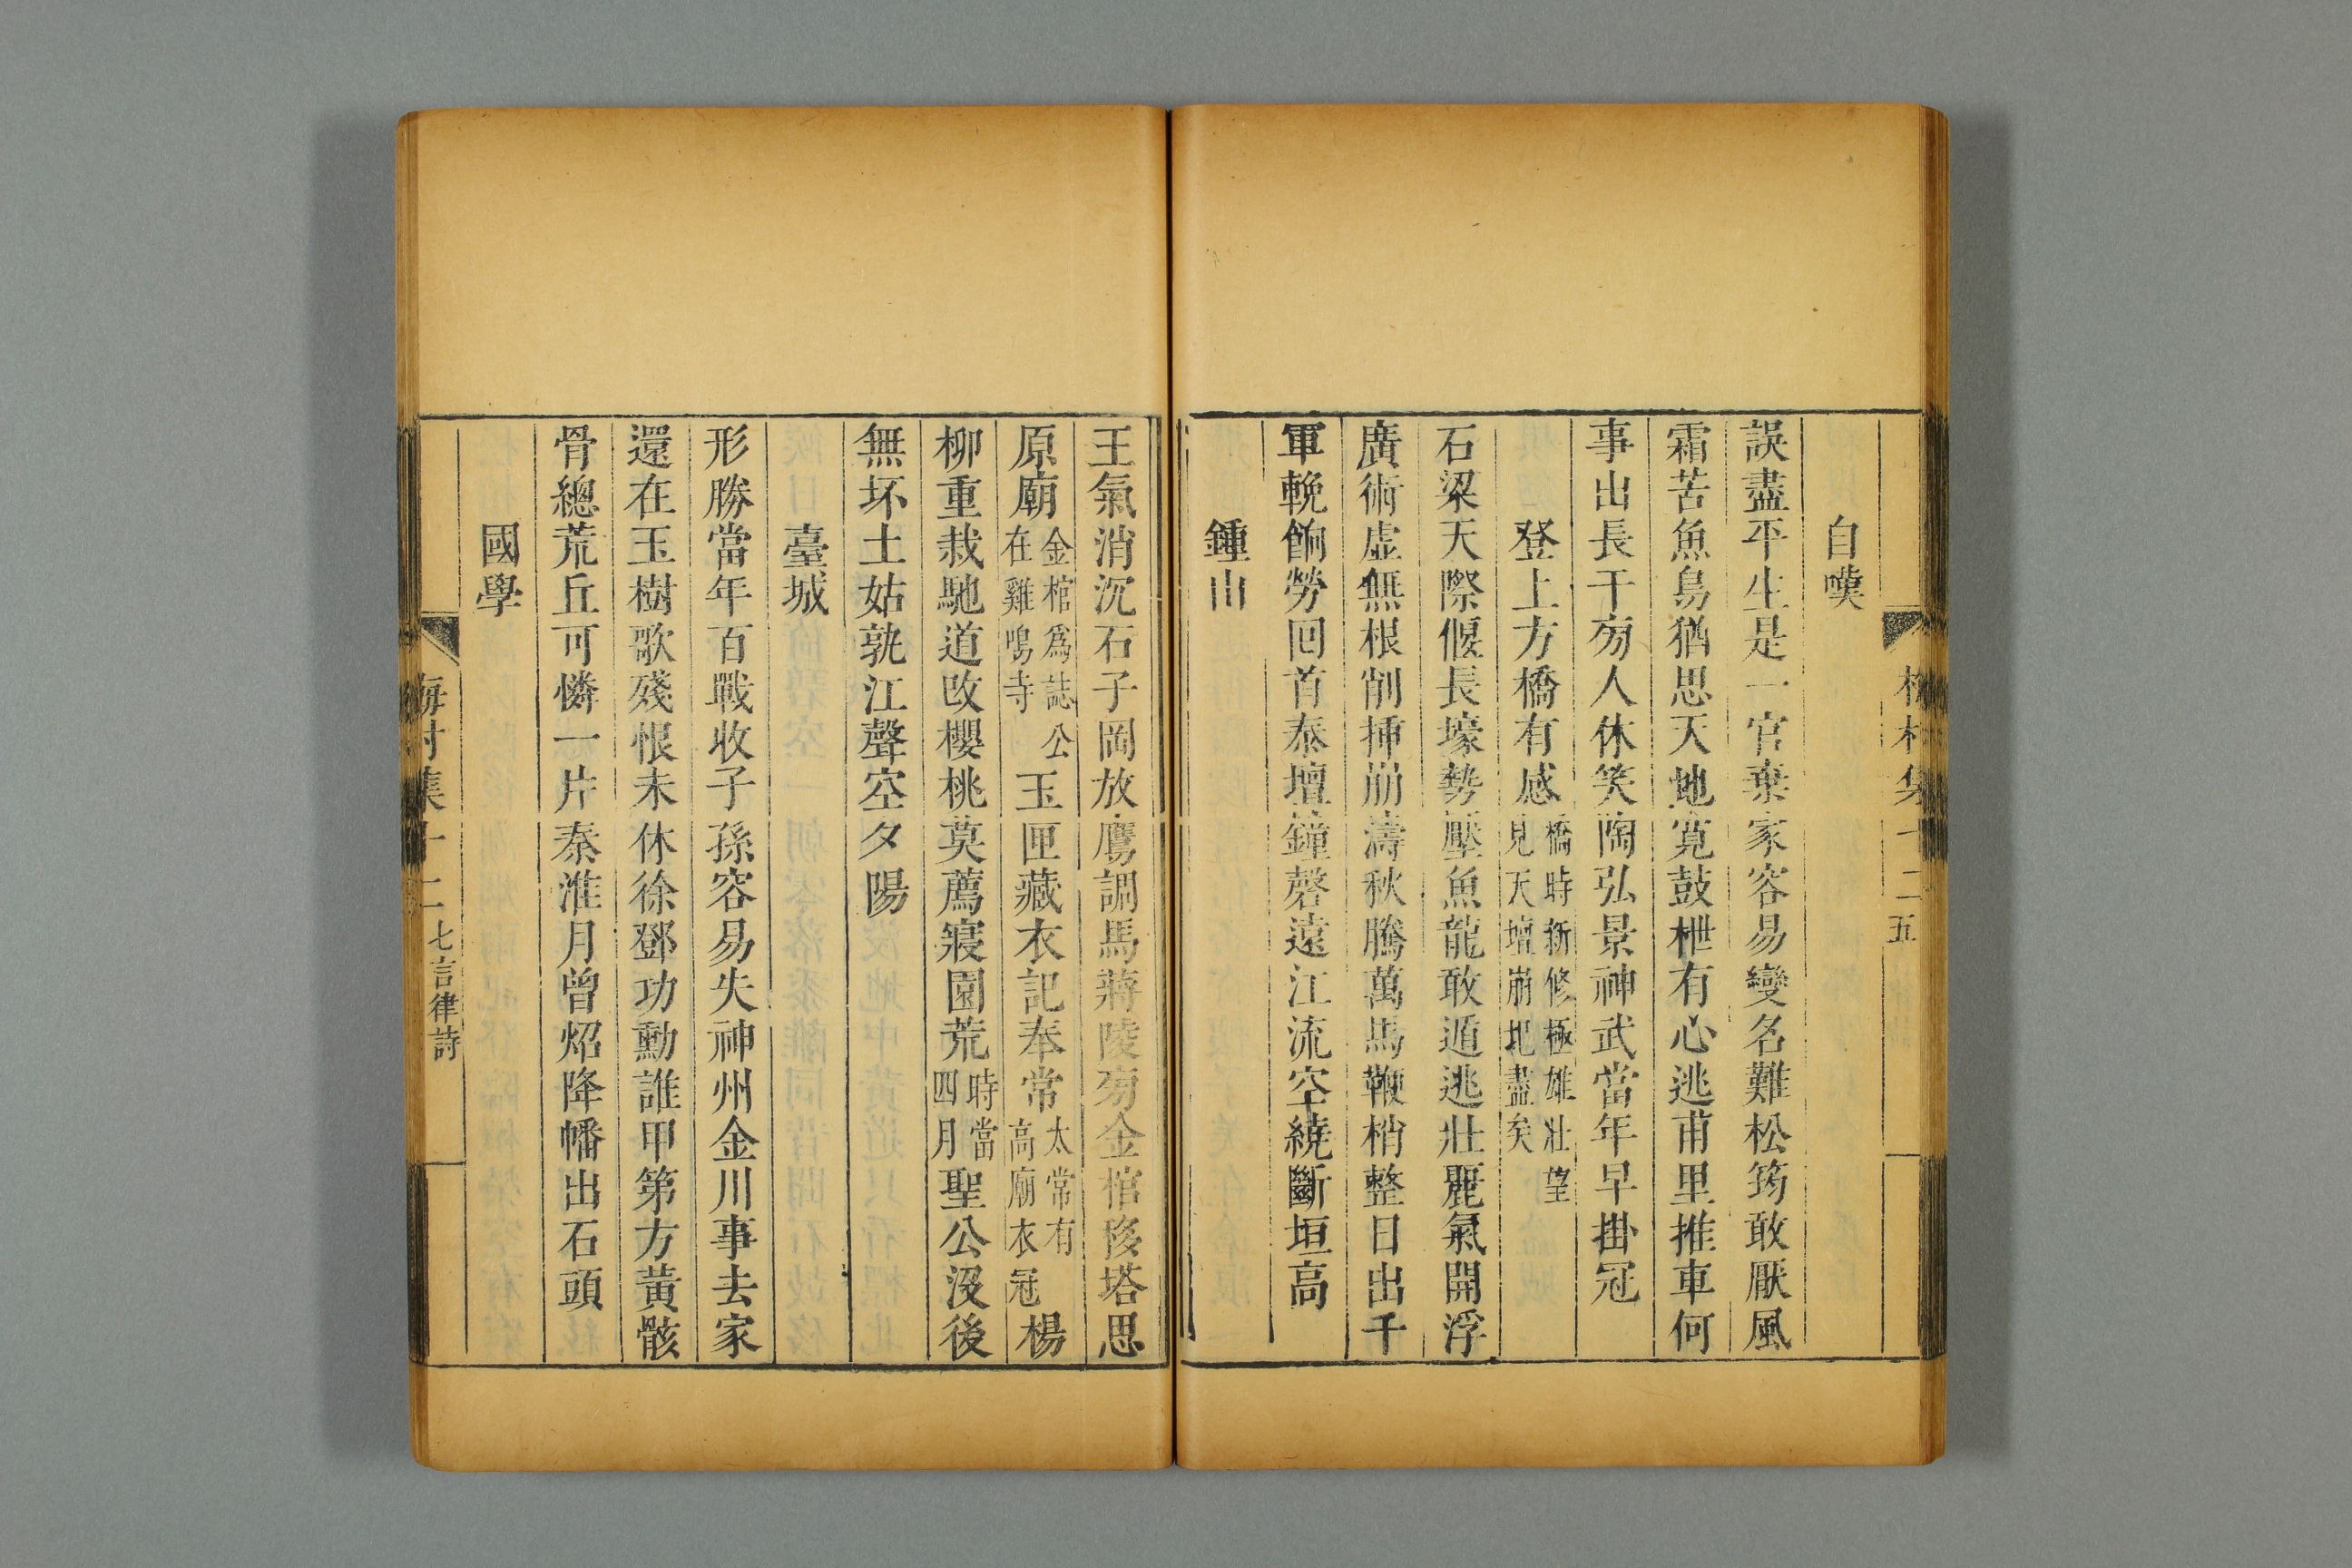 自嘆
誤盡平生是一官棄家容易變名難松筠敢厭風
霜苦魚鳥猶思天地寬鼓枻有心逃甫里推車何
事出長干旁人休笑陶弘景神武當年早掛冠
登上方橋有感橋時新修極雄壯望見天壇崩圯盡矣
石梁天際偃長壕勢壓魚龍敢遁逃壯麗氣開浮
廣術虛無根削揷崩濤秋騰萬馬鞭梢整日出千
軍輓餉勞回首泰壇鐘磬遠江流空繞斷垣高
鍾山
王氣消沉石子岡放鷹調馬蔣陵旁金棺移塔思
原廟金棺為誌公在雞鳴寺玉匣藏衣記奉常太常有高廟衣冠楊
柳重栽馳道改櫻桃莫薦寢園荒時當四月聖公沒後
無坏土姑孰江聲空夕陽
臺城
形勝當年百戰收子孫容易失神州金川事去家
還在玉樹歌殘恨未休徐鄧功勳誰甲第方黃骸
骨總荒丘可憐一片秦淮月曾炤降幡出石頭
國學
梅村集十二 七言律詩